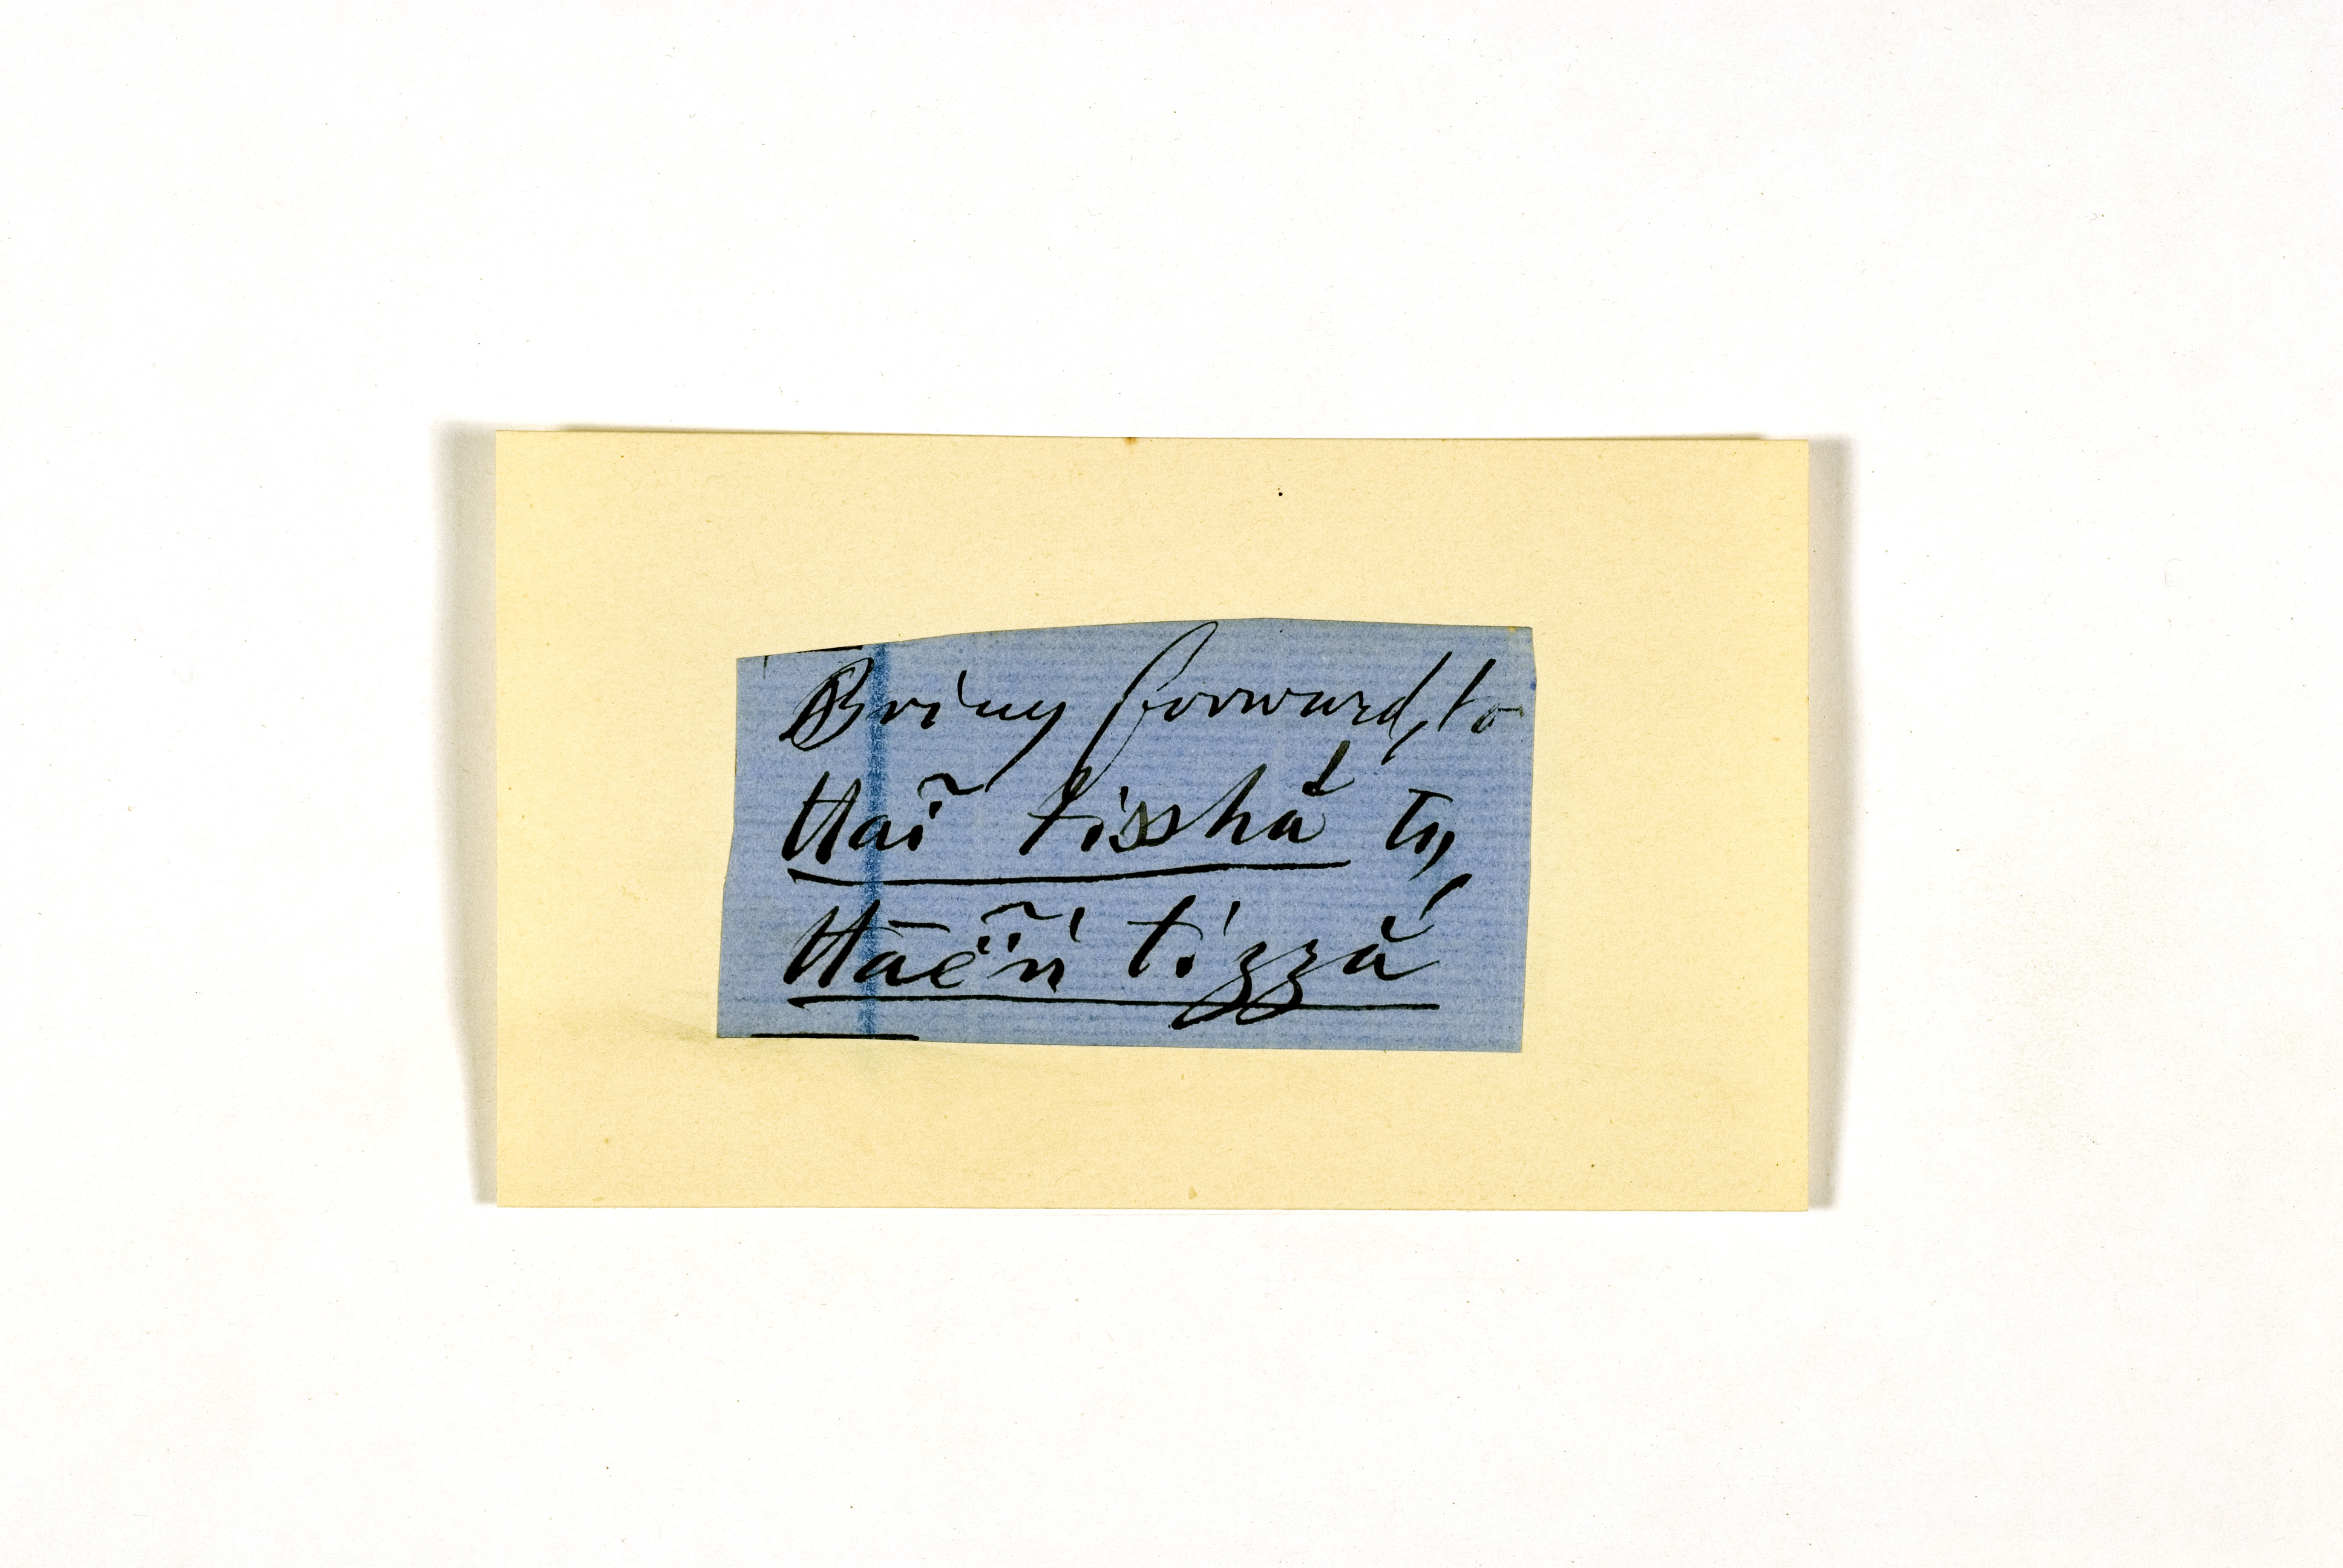 Bring forward, to
Hai͂ tisshá to,
Hāë͂n' tízzá